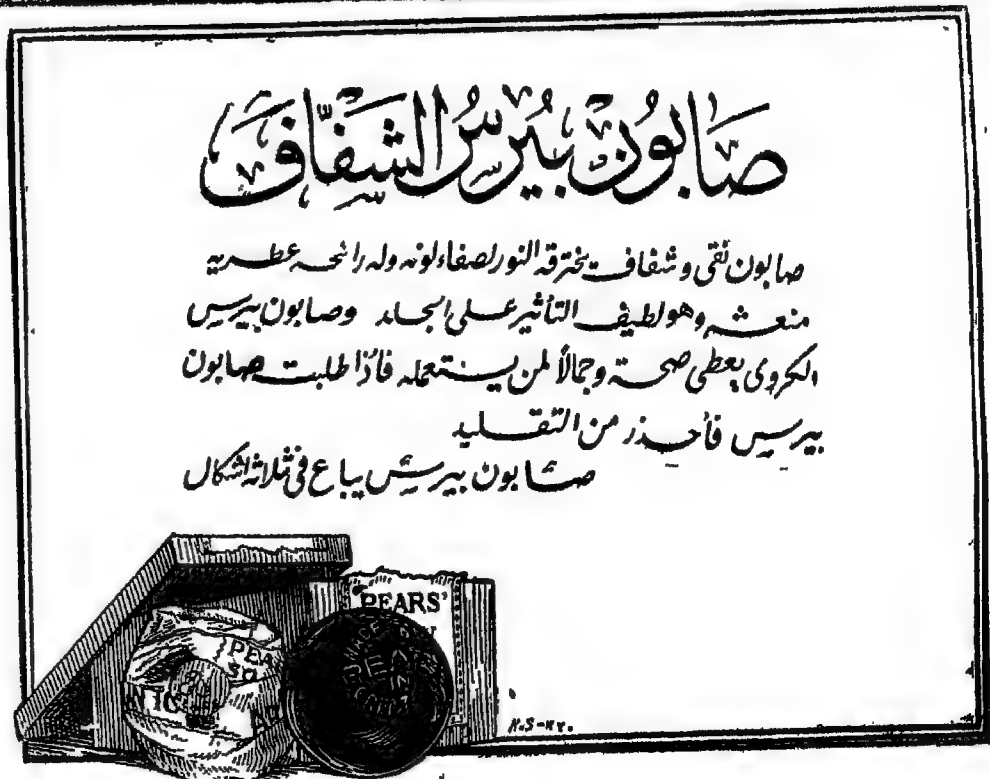 صَابُونْ بِيُرسُ الشَفّافَ
صابون نقى وشفاف تخترقه النور لصفاء لونه وله رائحه عطريه
منعشه وهو لطيف التأثير على الجلد وصابون بيرس
الكروى يعطى صحة وجمالاً لمن يستعمله فأذا طلبت صابون
بيرس فأحذر من التقليد
صابون بيرس يباع فى ثلاثه اشكال
PEARS'
PEA
SO